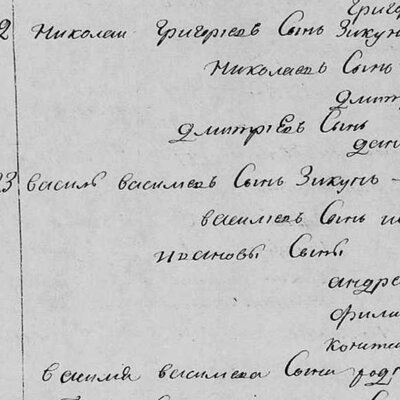 Григо
2 Николаи Григорьевъ Сынъ Зикун
Николаевъ Сынъ
Дмит
Дмитріевъ Сынъ
дан
23 василь васильевъ Сынъ Зикунъ -
васильевъ Сынъ
ивановы Сыны
андре
фили
конст
василия васильева Сына род